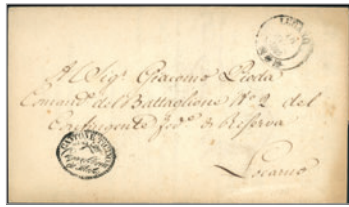 Al Sigr. Giacomo Pioda
Comand. del Battaglione No. 2 del
Contingente fedle. di Riserva
Locarno
CANTONE TICINO